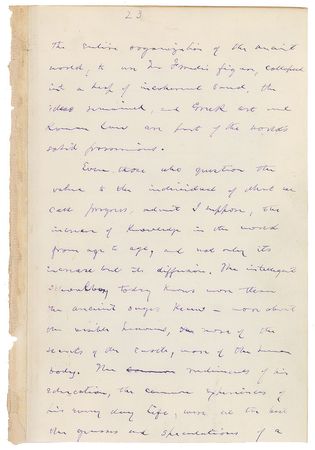 23
the entire organization of the ancient
world, to use Mr Froude's figure, collapsed
into a heap of incoherent sand, the
ideas remained, and Greek art and
Roman law are part of the world's
solid possessions.
Even those who question the
value to the individual of what we
call progress, admit, I suppose, the
increase of knowledge in the world
from age to age, and not only its
increase but its diffusion. The intelligent
schoolboy today knows more than
the ancient sages knew — more about
the visible heavens, more of the
secrets of the earth, more of the human
body. The rudiments of his
education, the common experiences of
his every day life, were, at the best
the guesses and speculations of a